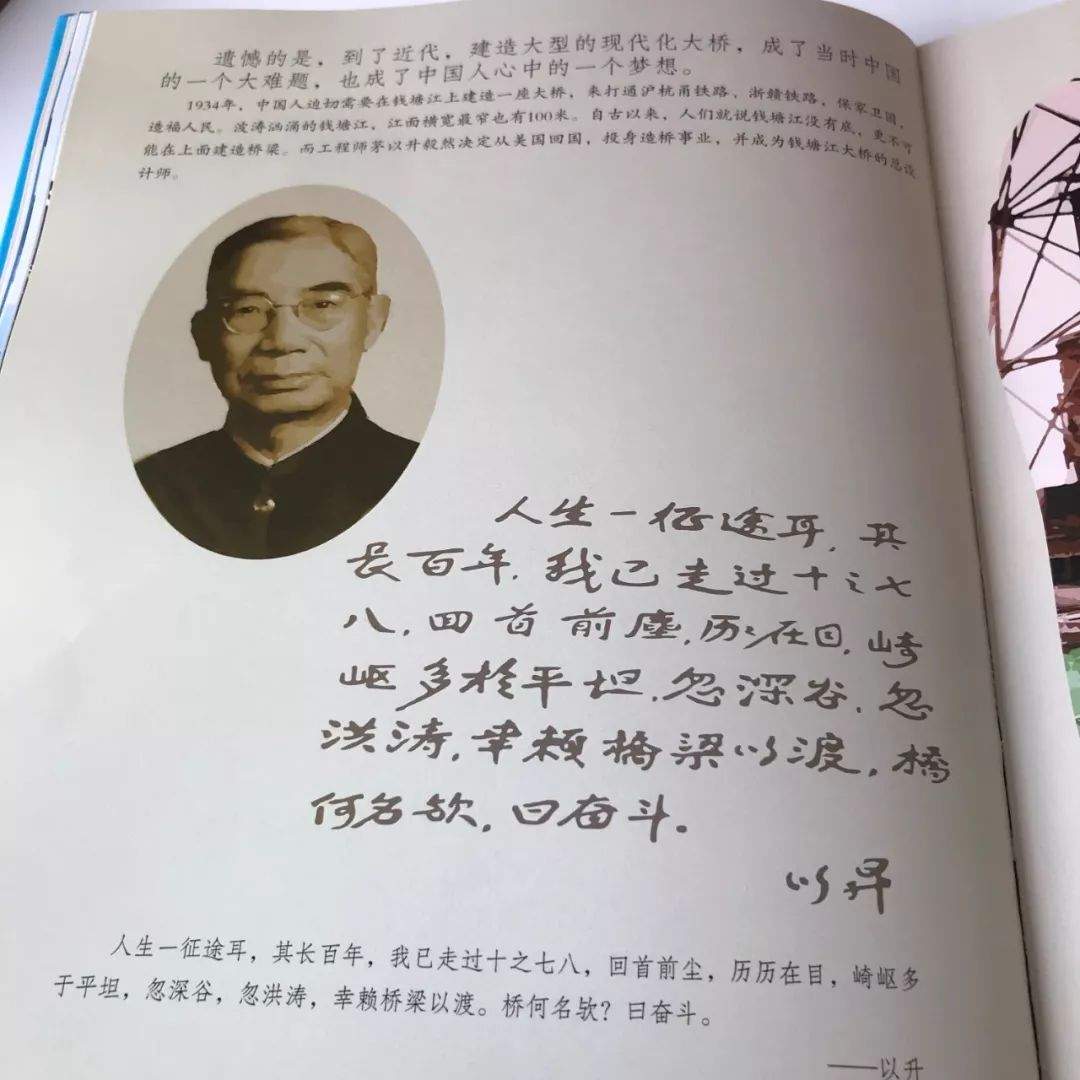 遗憾的是，到了近代，建造大型的现代化大桥，成了当时中国
的一个大难题，也成了中国人心中的一个梦想。
1934年，中国人迫切需要在钱塘江上建造一座大桥，来打通沪杭甬铁路、浙赣铁路，保家卫国，
造福人民。波涛汹涌的钱塘江，江面横宽最窄也有100米。自古以来，人们就说钱塘江没有底，更不可
能在上面建造桥梁。而工程师茅以升毅然决定从美国回国，投身造桥事业，并成为钱塘江大桥的总设
计师。
人生一征途耳，其
长百年，我已走过十之七
八，回首前塵，历历在目，崎
岖多於平坦，忽深谷，忽
洪涛，幸赖橋梁以渡，橋
何名欤，曰奋斗。
以昇
人生一征途耳，其长百年，我已走过十之七八，回首前尘，历历在目，崎岖多
于平坦，忽深谷，忽洪涛，幸赖桥梁以渡。桥何名欤？曰奋斗。
——以升